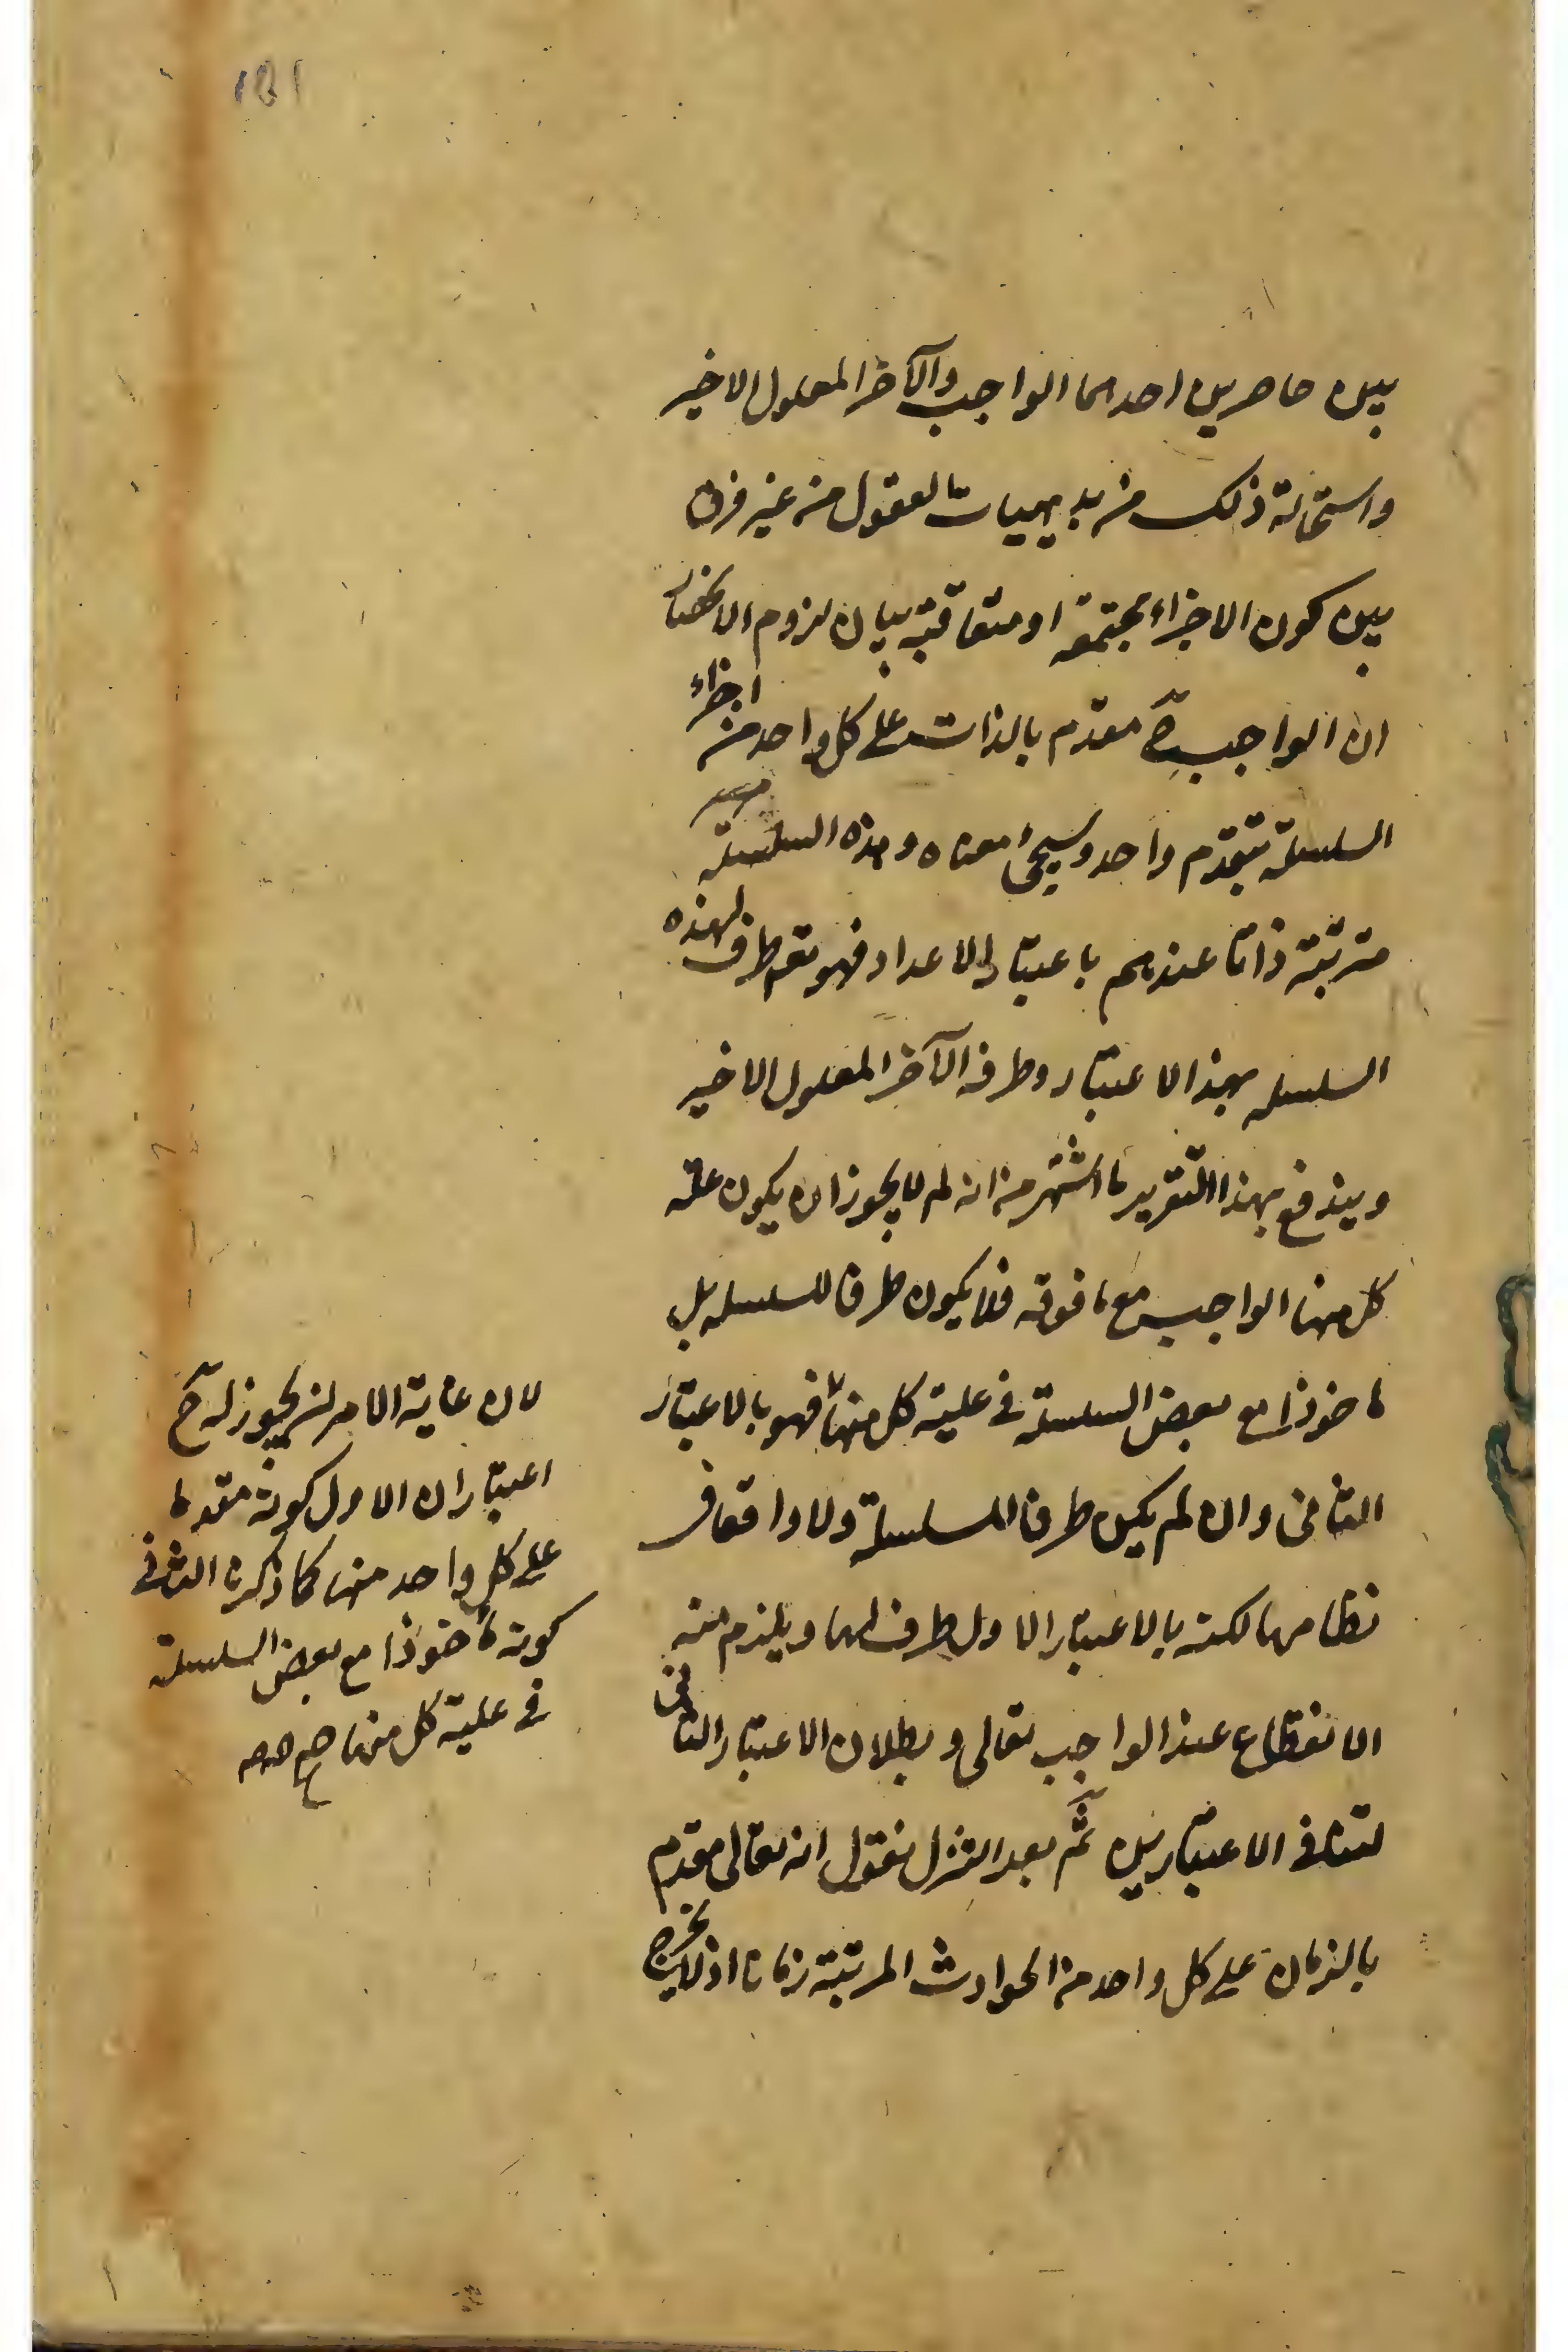 بين حاصرين احدهما الواجب والآخر المعلول الاخير
واستحالة ذلك من بديهيات العقول من غير فرق
بين كون الاجزاء مجتمعة او متعاقبة بيان لزوم الانحصار
ان الواجب تع مقدم بالذات على كل واحد من اجزاء
السلسلة بتقدم واحد وسيجئ معناه وهذه السلسلة
مترتبة ذاتا عندهم باعتبار الاعداد فهو تع طرف لهذه
السلسله بهذا الاعتبار وطرفه الآخر المعلول الاخير
ويندفع بهذا التقرير ما اشتهر من انه لم لا يجوز ان يكون علة
كل منها الواجب مع ما فوقه فلا يكون طرفا للسلسله بل
ماخوذا مع بعض السلسلة في علية كل منها فهو بالاعتبار
الثاني وان لم يكن طرفا للسلسلة ولا واقعا في
نظامها لكنه بالاعتبار الاول طرف لها ويلزم منه
الانقطاع عند الواجب تعالى وبطلان الاعتبار الثاني
لتنافي الاعتبارين ثم بعد التنزل نقول انه تعالى مقدم
بالزمان على كل واحد من الحوادث المرتبة زمانا اذ لا يخرج
لان غاية الامر ان يجوز له تع ح
اعتباران الاول كونه مقدما
على كل واحد منها كما ذكرنا الثاني
كونه ماخوذا مع بعض السلسلة
في علية كل منها صح